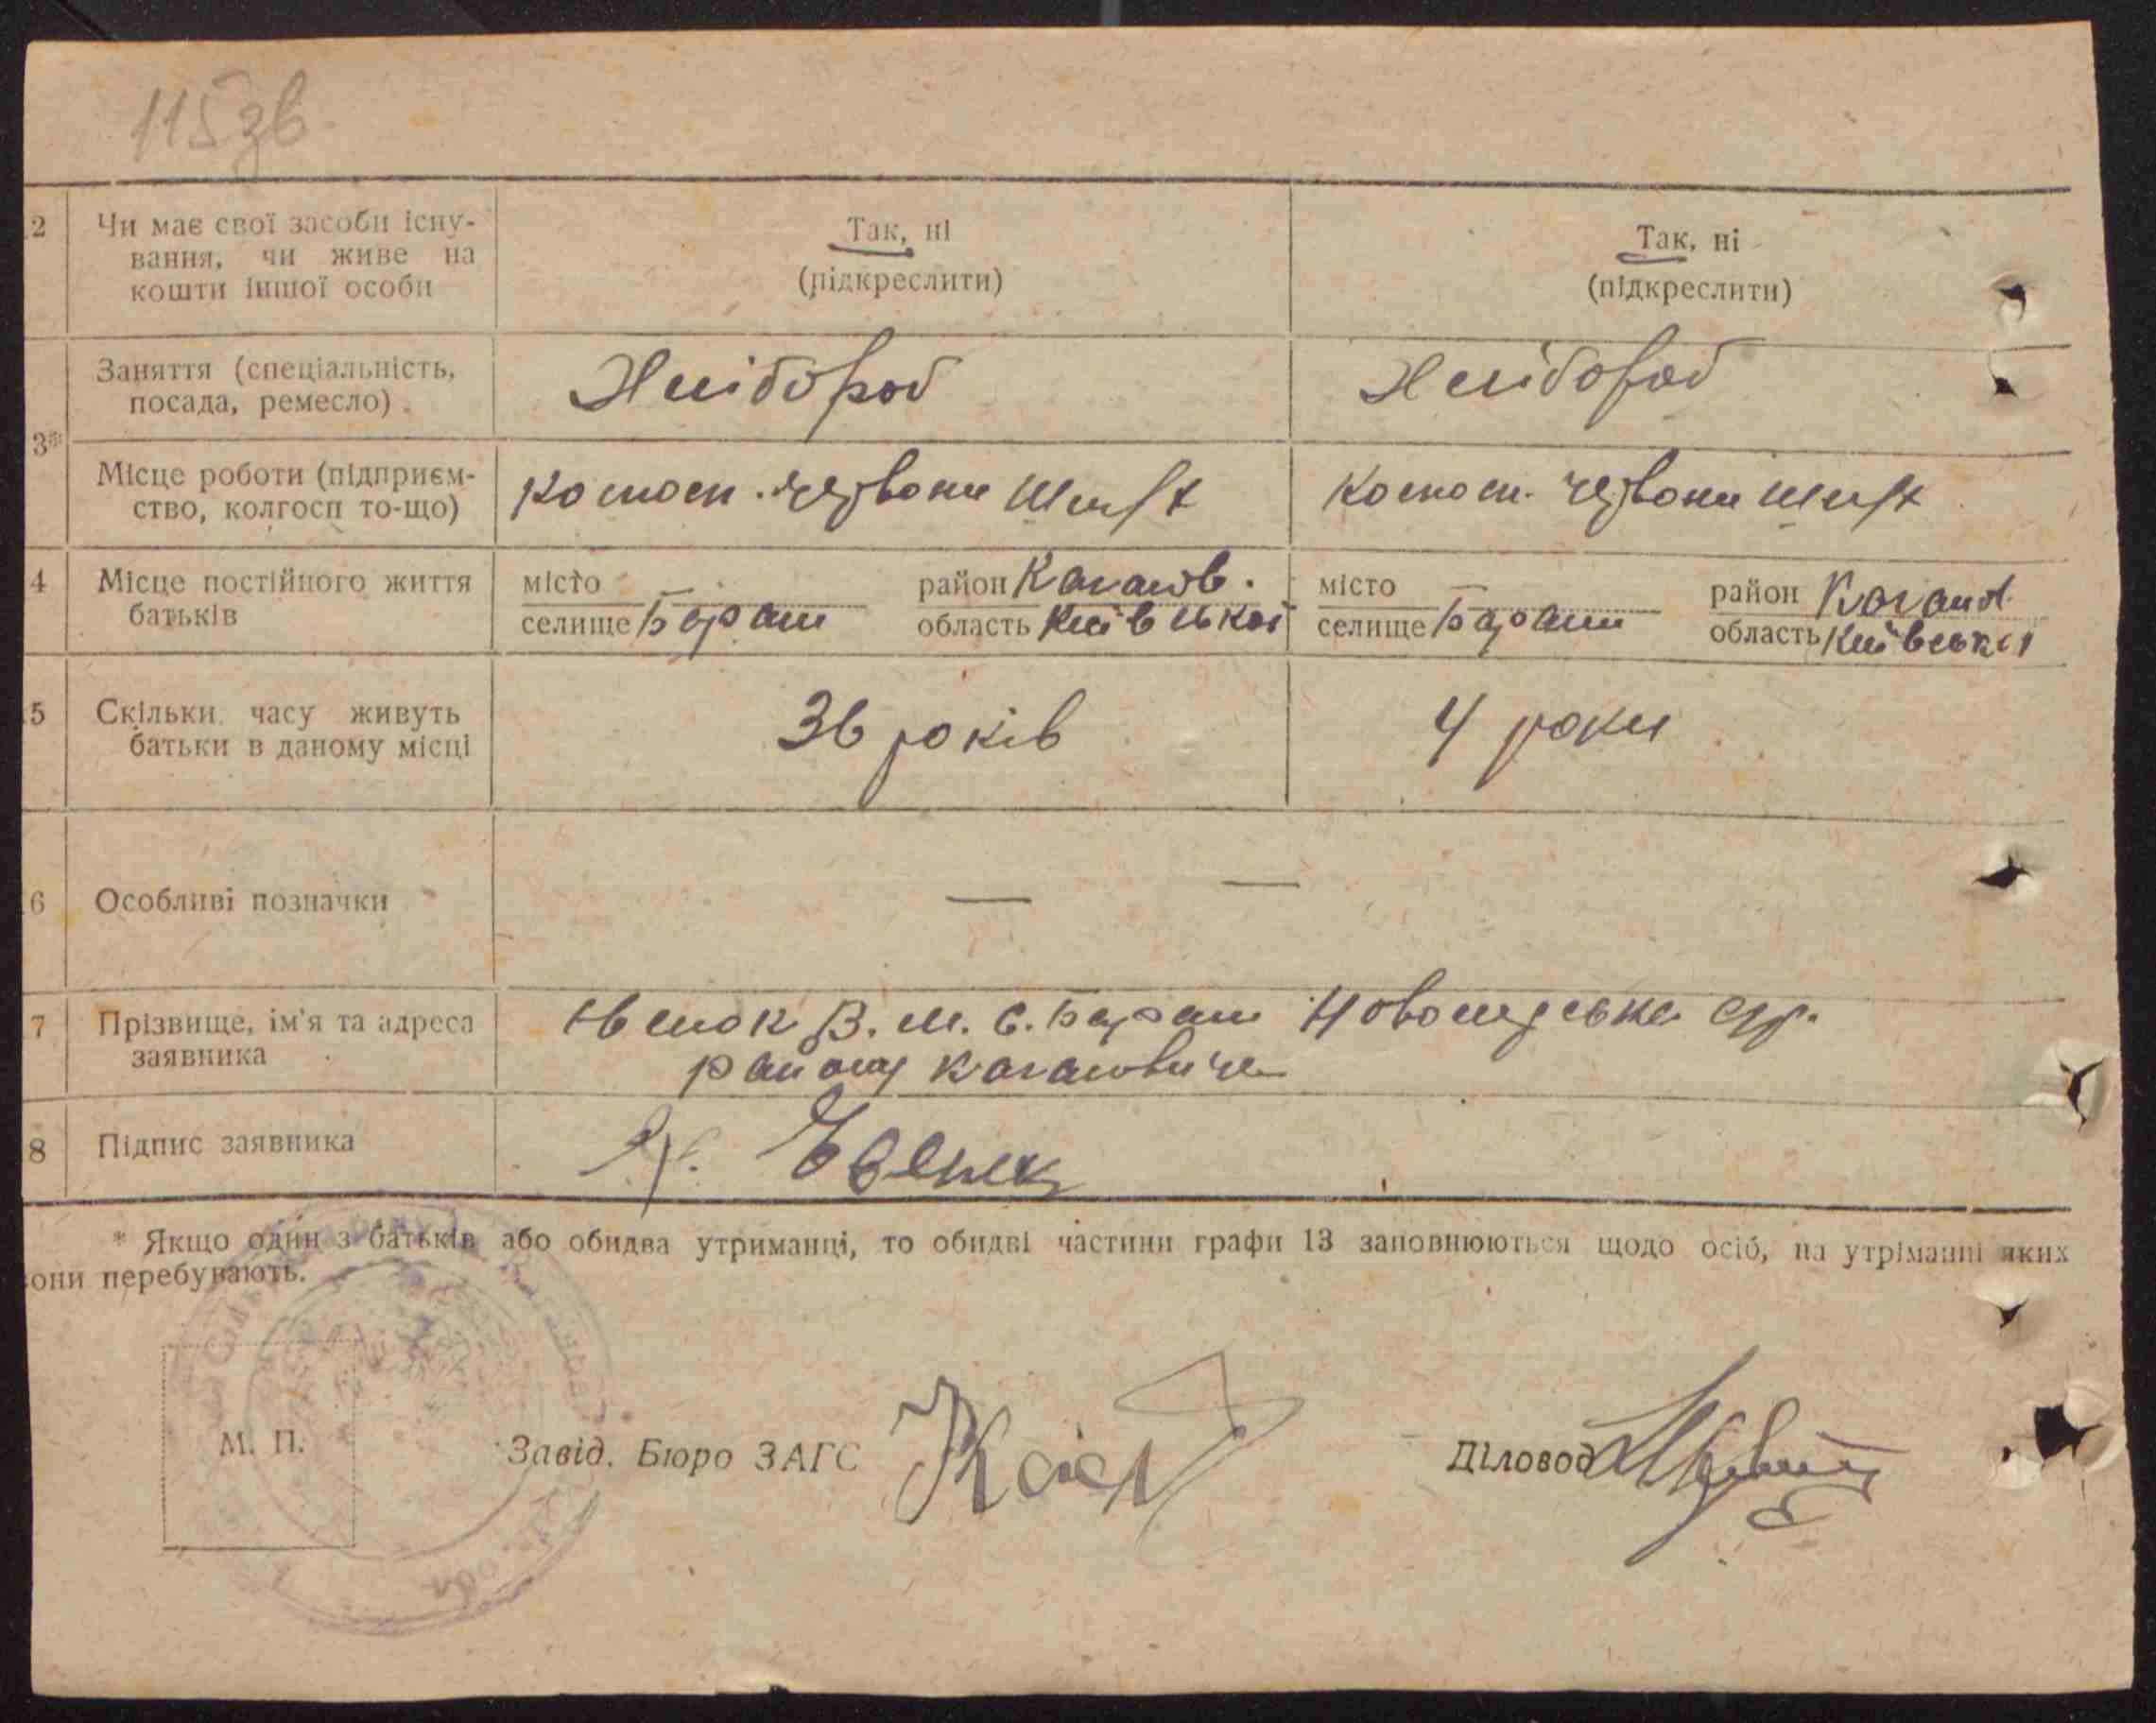 115зв.
2 Чи має свої засоби існу-
вання, чи живе на
кошти іншої особи
Так, ні
(підкреслити)
Так, ні
(підкреслити)
3* Заняття (спеціальність,
посада, ремесло)
Хлібороб
Хлібороб
Місце роботи (підприєм-
ство, колгосп то-що)
колгосп. червони шлях
колгосп. червони шлях
4 Місце постійного життя
батьків
місто
селище
район Каганов.
область Київської
місто
селище
район Каганов.
область Київської
5 Скільки часу живуть
батьки в даному місці
36 років
4 роки
6 Особливі позначки
— —
7 Прізвище, ім'я та адреса
заявника
В. М. с.
району Кагановича
8 Підпис заявника
* Якщо один з батьків або обидва утриманці, то обидві частини графи 13 заповнюються щодо осіб, на утріманні яких
они перебувають.
М. П.
Завід. Бюро ЗАГС
Діловод